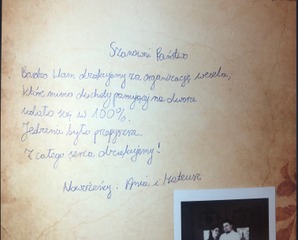 Szanowni Państwo
Bardzo Wam dziękujemy za organizację wesela,
które mimo duchoty panującej na dworze
udało się w 100%.
Jedzenie było przepyszne.
Z całego serca dziękujemy!
Nowożeńcy: Ania i Mateusz